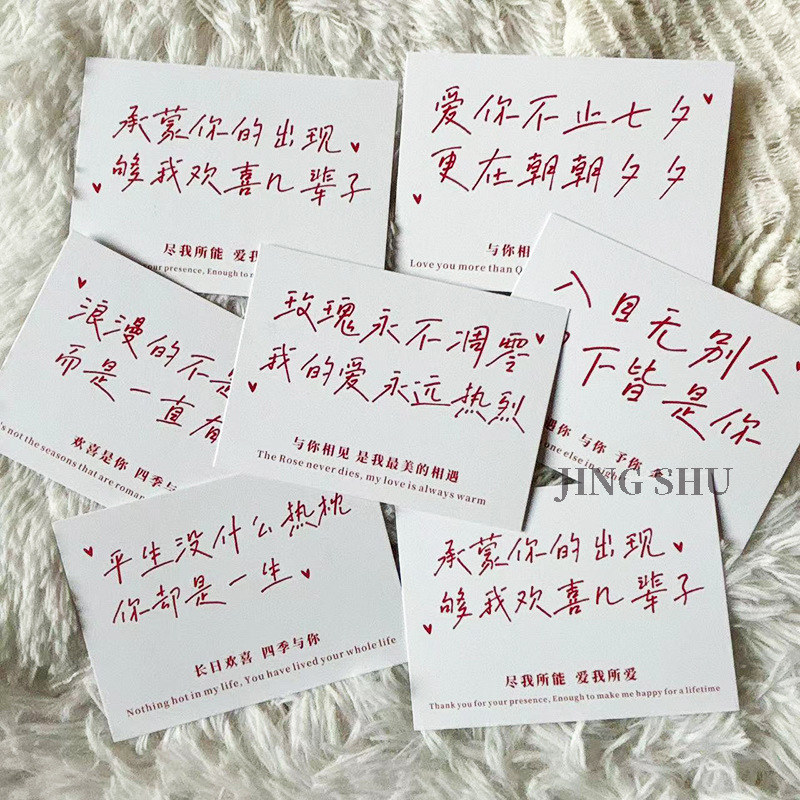 承蒙你的出现
够我欢喜几辈子
尽我所能 爱我
your presence, Enough to
爱你不止七夕
更在朝朝夕夕
与你相
Love you more than Q
浪漫的不是
而是一直有
欢喜是你 四季与
's not the seasons that are roman
玫瑰永不凋零
我的爱永远热烈
与你相见 是我最美的相遇
The Rose never dies, my love is always warm
入目无别人
下皆是你
遇你 与你 予你
one else in
JING SHU
平生没什么热枕
你却是一生
长日欢喜 四季与你
Nothing hot in my life, You have lived your whole life
承蒙你的出现
够我欢喜几辈子
尽我所能 爱我所爱
Thank you for your presence, Enough to make me happy for a lifetime